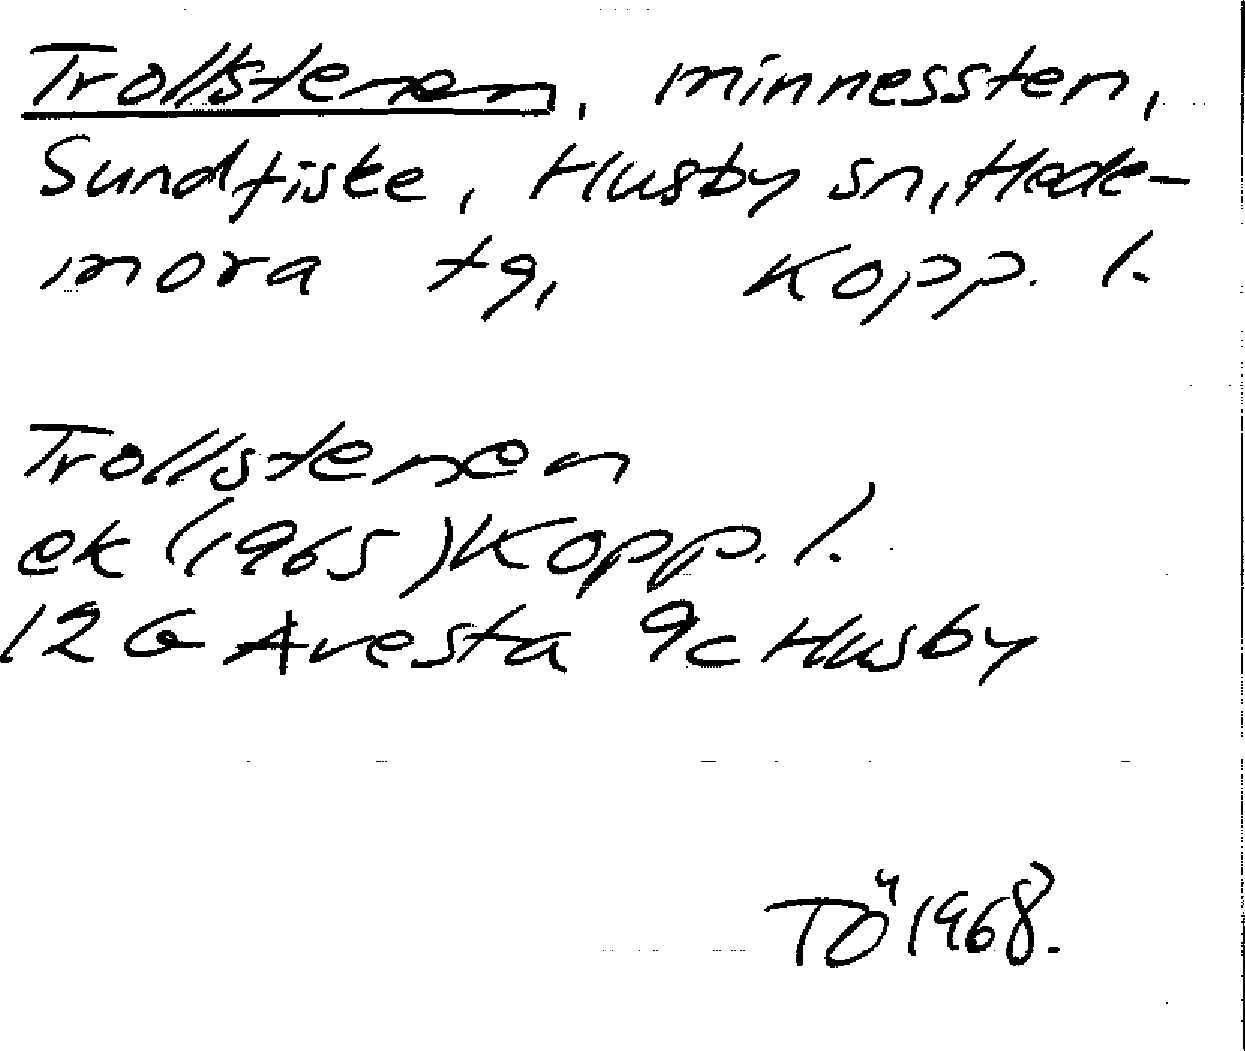 Trollstenen, minnessten,
Sundfiske, Husby sn, Hede-
mora tg, Kopp. l.
Trollstenen
ek (1965) Kopp. l.
12 G Avesta 9c Husby
TÖ 1968.